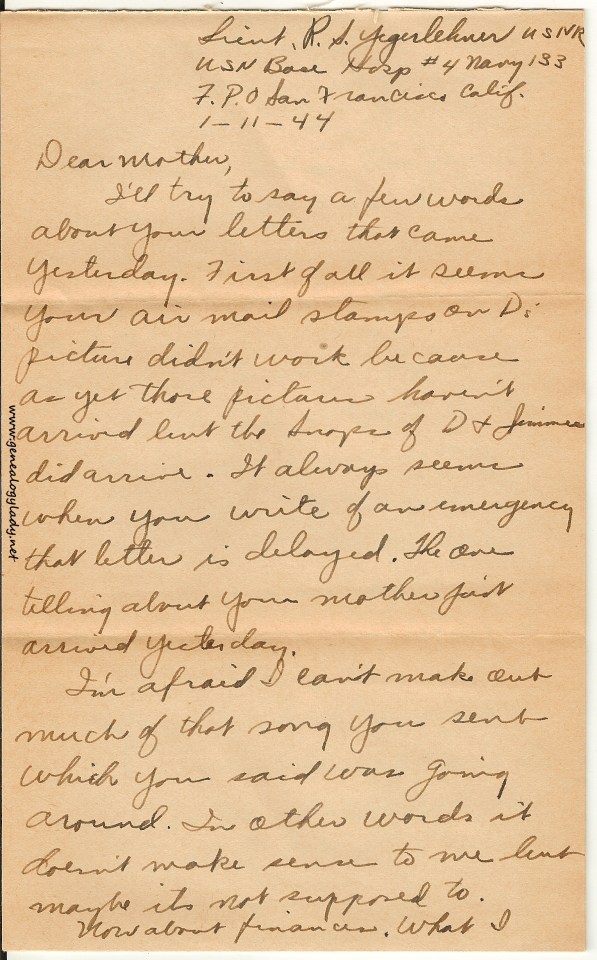 Lieut. R. S. Yegerlehner USNR
USN Base Hosp #4 Navy 133
F.P.O San Francisco Calif.
1-11-44
Dear Mother,
I'll try to say a few words
about your letters that came
yesterday. First of all it seems
your air mail stamps on D's
picture didn't work because
as yet those pictures haven't
arrived but the snaps of D & Jimmie
did arrive. It always seems
when you write of an emergency
that letter is delayed. The one
telling about your mother just
arrived yesterday.
I'm afraid I can't make out
much of that song you sent
which you said was going
around. In other words it
doesn't make sense to me but
maybe its not supposed to.
Now about finances. What I
www.genealogylady.net